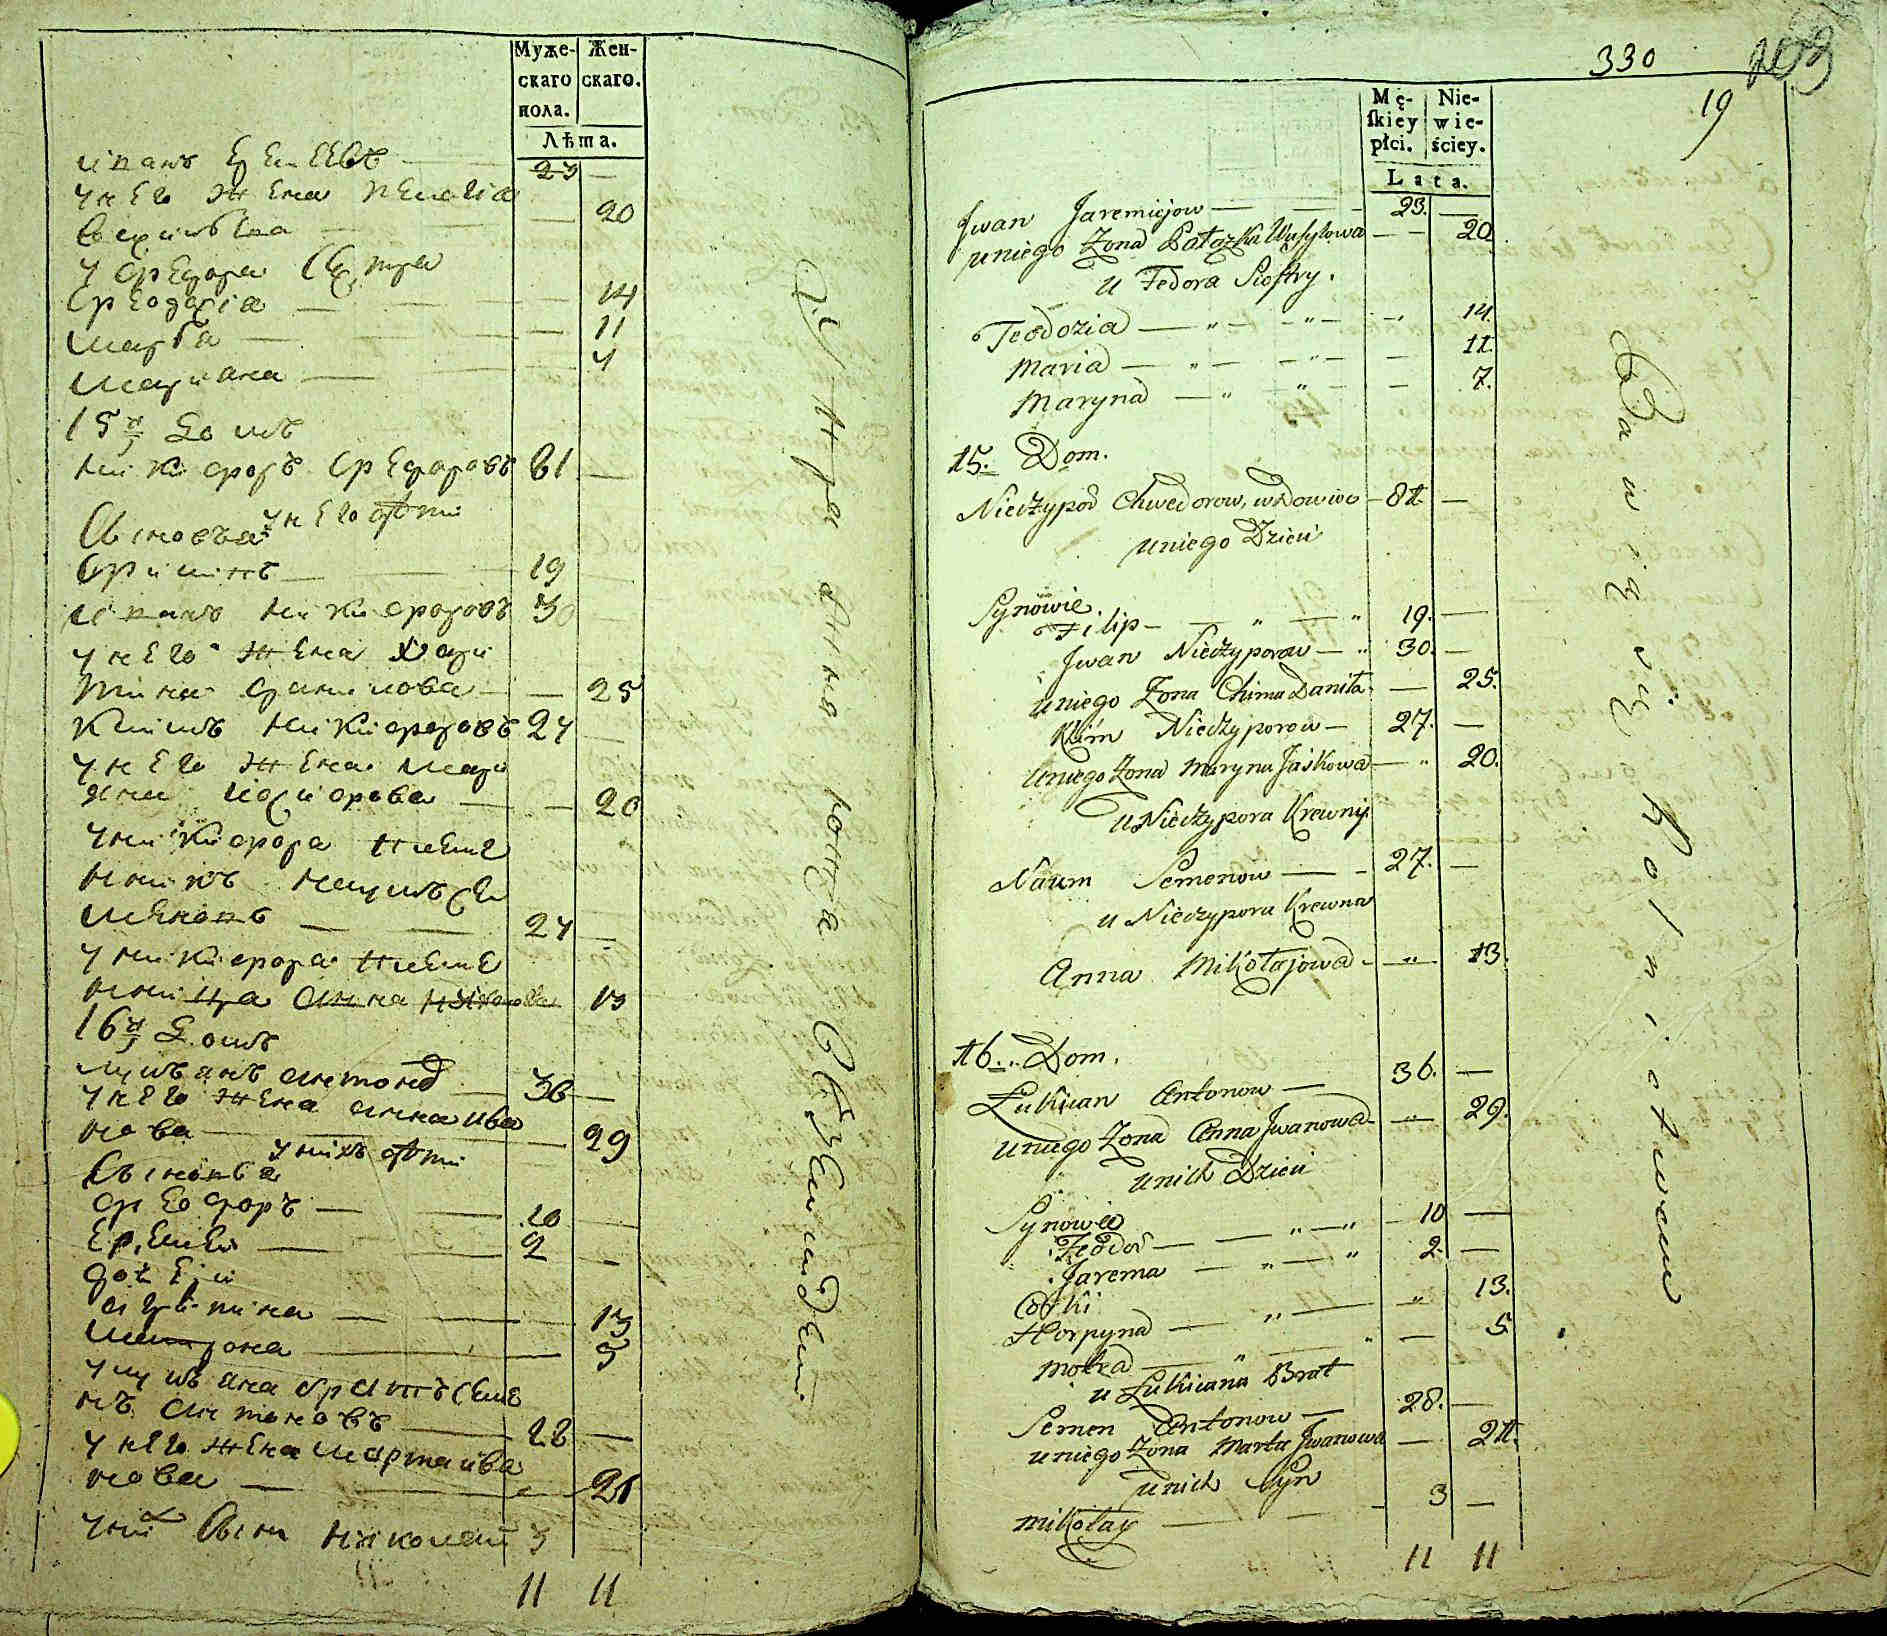 Муже-
скаго
пола.
Жен-
скаго.
Лѣта.
иванъ Еремеевъ — 23 —
у него жена пелагiа
— 20
у федора сестра
феодосiа — 14
марѳа — 11
мариана — 7
15й домъ
никифоръ федоровъ 81 —
у него дѣти
Сыновья
филипъ — 19
иванъ никифоровъ 30
у него жена хари
тина данилова — 25
климъ никифоровъ 27 —
у него жена мари
— 20
у никифора племе
нникъ наумъ се
меновъ — 27 —
у никифора племе
нница анна 13
16й домъ
лукъянъ антоновъ — 36 —
у него жена анна ива
нова — 29
у нихъ дѣти
Сыновья
феодоръ — 10
Еремей — 2 —
дочери
агрипина — 13
матрона — 5
у лукъяна братъ семе
нъ антоновъ — 28 —
у него жена марта ива
нова — 21
у них сынъ николай 3
11 11
330
19
Mę-
ſkiey
płci.
Nie-
wie-
ściey.
Lata.
Jwan Jaremiejow — 23. —
uniego Zona Pałazka Wasylowa — 20.
u Fedora Siostry.
Teodozia — 14.
Maria — 11.
Maryna — 7.
15. Dom.
Nieczypor Chwedorow, wdowiec — 81. —
uniego Dzieci
Synowie.
Filip — 19. —
Jwan Nieczyporow — 30. —
uniego Zona Chima Daniła — 25.
Klim Nieczyporow — 27. —
uniego Zona Maryna Jaśkowa — 20.
u Nieczypora Krewny
Naum Semenow — 27. —
u Nieczypora Krewna
Anna Mikołajowa — 13.
16. Dom.
Łukian Antonow — 36. —
uniego Zona Anna Jwanowa — 29.
unich Dzieci
Synowie
Teodor — 10 —
Jarema — 2. —
Corki
Horpyna — 13.
Motra — 5
u Łukiana Brat
Semen Antonow — 28. —
uniego Zona Marta Jwanowa — 21.
unich Syn
Mikołay — 3 —
11 11